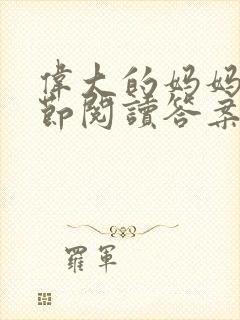 偉大的妈妈
節閱讀答案
羅軍